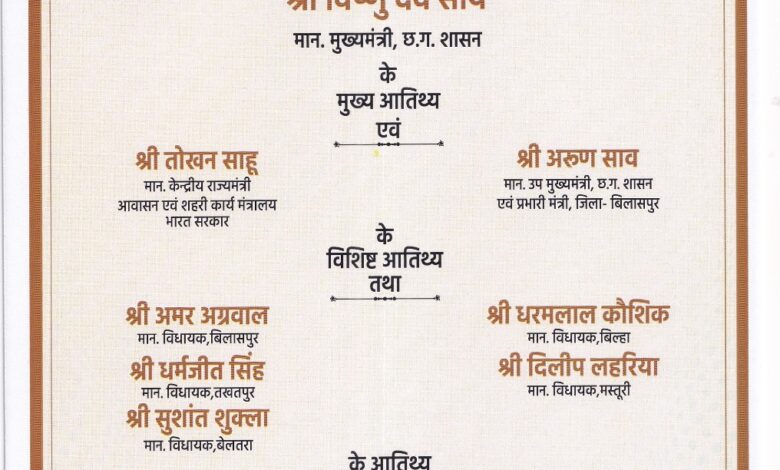 श्री विष्णु देव साय
मान. मुख्यमंत्री, छ.ग. शासन
के
मुख्य आतिथ्य
एवं
श्री तोखन साहू
मान. केन्द्रीय राज्यमंत्री
आवासन एवं शहरी कार्य मंत्रालय
भारत सरकार
श्री अरूण साव
मान. उप मुख्यमंत्री, छ.ग. शासन
एवं प्रभारी मंत्री, जिला- बिलासपुर
के
विशिष्ट आतिथ्य
तथा
श्री अमर अग्रवाल
मान. विधायक,बिलासपुर
श्री धरमलाल कौशिक
मान. विधायक,बिल्हा
श्री धर्मजीत सिंह
मान. विधायक,तखतपुर
श्री दिलीप लहरिया
मान. विधायक,मस्तूरी
श्री सुशांत शुक्ला
मान. विधायक,बेलतरा
के आतिथ्य